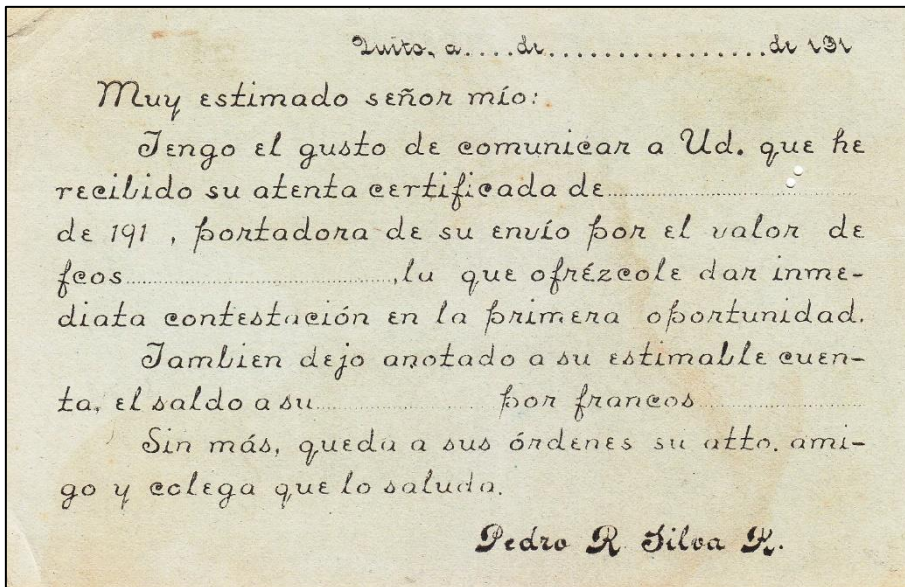 Quito, a....de.................de 191
Muy estimado señor mío:
Tengo el gusto de comunicar a Ud. que he
recibido su atenta certificada de....................
de 191 , portadora de su envío por el valor de
fcos............................, la que ofrézcole dar inme-
diata contestación en la primera oportunidad.
Tambien dejo anotado a su estimable cuen-
ta, el saldo a su.................... por francos....................
Sin más, queda a sus órdenes su atto. ami-
go y colega que lo saluda.
Pedro R. Silva R.